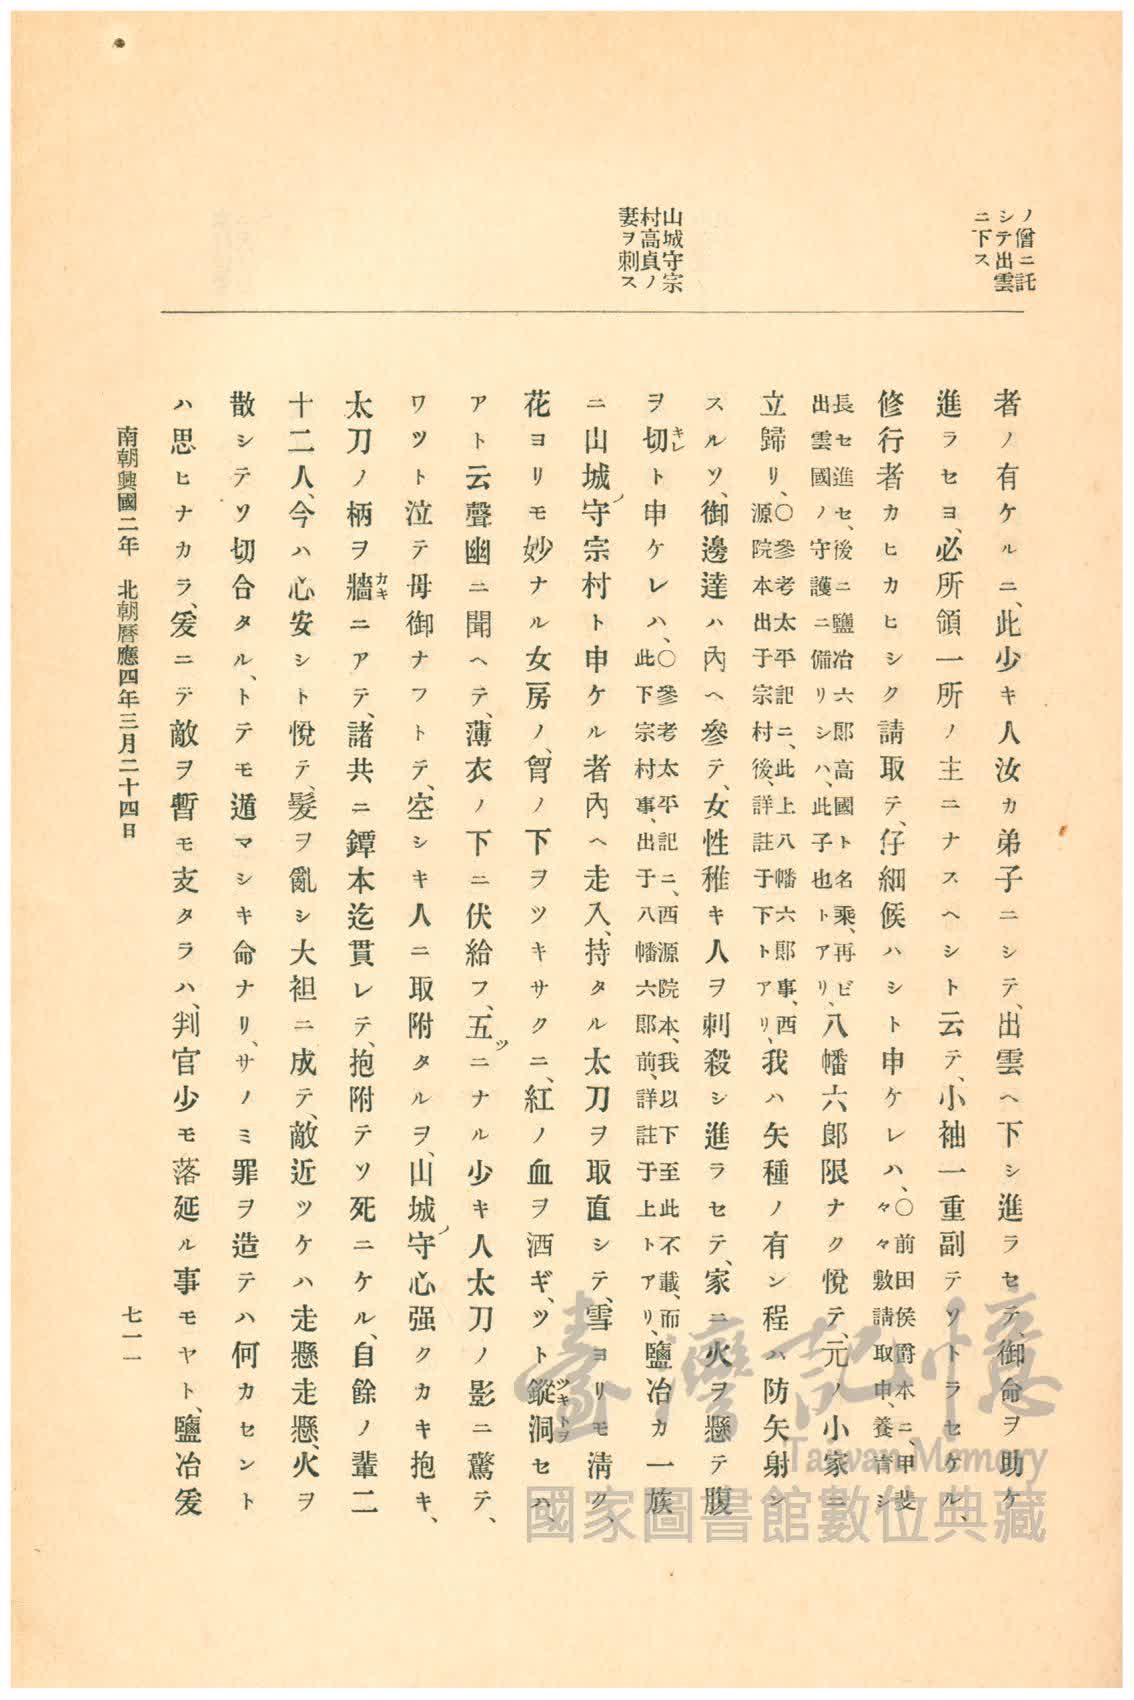 ノ僧ニ託
シテ出雲
ニ下ス
山城守宗
村高貞ノ
妻ヲ刺ス
者ノ有ケルニ、此少キ人汝カ弟子ニシテ、出雲ヘ下シ進ラセテ、御命ヲ助ケ
進ラセヨ、必所領一所ノ主ニナスヘシト云テ、小袖一重副テソトラセケル、
修行者カヒカヒシク請取テ、仔細候ハシト申ケレハ、〇前田侯爵本ニ、甲斐々々敷請取申、養育シ
長セ進セ、後ニ鹽冶六郎高國ト名乘、再ビ出雲國ノ守護ニ備リシハ、此子也トアリ、八幡六郎限ナク悅テ、元ノ小家ニ
立歸リ、〇參考太平記ニ、此上八幡六郎事、西源院本出于宗村後、詳註于下トアリ、我ハ矢種ノ有ン程ハ防矢射シ
スルソ、御邊達ハ內ヘ參テ、女性稚キ人ヲ刺殺シ進ラセテ、家ニ火ヲ懸テ腹
ヲ切キレト申ケレハ、〇參考太平記ニ、西源院本、我以下至此不載、而此下宗村事、出于八幡六郎前、詳註于上トアリ、鹽冶カ一族
ニ山城ノ守宗村ト申ケル者內ヘ走入、持タル太刀ヲ取直シテ、雪ヨリモ淸ク、
花ヨリモ妙ナル女房ノ、胷ノ下ヲツキサクニ、紅ノ血ヲ洒ギ、ツト鏦洞ツキトヲセハ、
アト云聲幽ニ聞ヘテ、薄衣ノ下ニ伏給フ、五ツニナル少キ人太刀ノ影ニ驚テ、
ワツト泣テ母御ナフトテ、空シキ人ニ取附タルヲ、山城ノ守心强クカキ抱キ、
太刀ノ柄ヲ牆カキニアテ、諸共ニ鐔本迄貫レテ、抱附テソ死ニケル、自餘ノ輩二
十二人、今ハ心安シト悅テ、髮ヲ亂シ大袒ニ成テ、敵近ツケハ走懸走懸、火ヲ
散シテソ切合タル、トテモ遁マシキ命ナリ、サノミ罪ヲ造テハ何カセント
ハ思ヒナカラ、爰ニテ敵ヲ暫モ支タラハ、判官少モ落延ル事モヤト、鹽冶爰
南朝興國二年 北朝曆應四年三月二十四日
七一一
臺灣記憶
Taiwan Memory
國家圖書館數位典藏